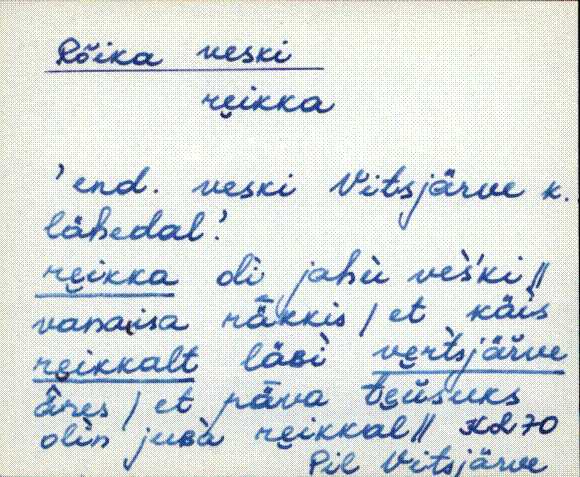 Rõika veski
rẹikka
'end. veski Vitsjärve k.
lähedal'.
rẹikka oli̬ jahù veški ||
vanaisa rǟkkis / et käis
rẹikkalt läbì vẹrtsjä̆rve
ǟres / et pǟva tẹŭsuks
olìn jubà rẹikkal || KL70
Pil Vitsjärve